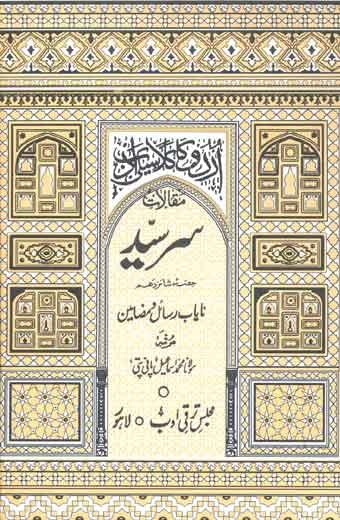 اردو کا کلاسیکی ادب
مقالات
سر سیّد
حصہ شانزدہم
نایاب رسائل و مضامین
مرتبہ
مولانا محمد اسماعیل پانی پتی
مجلس ترقی ادب ○ لاہور